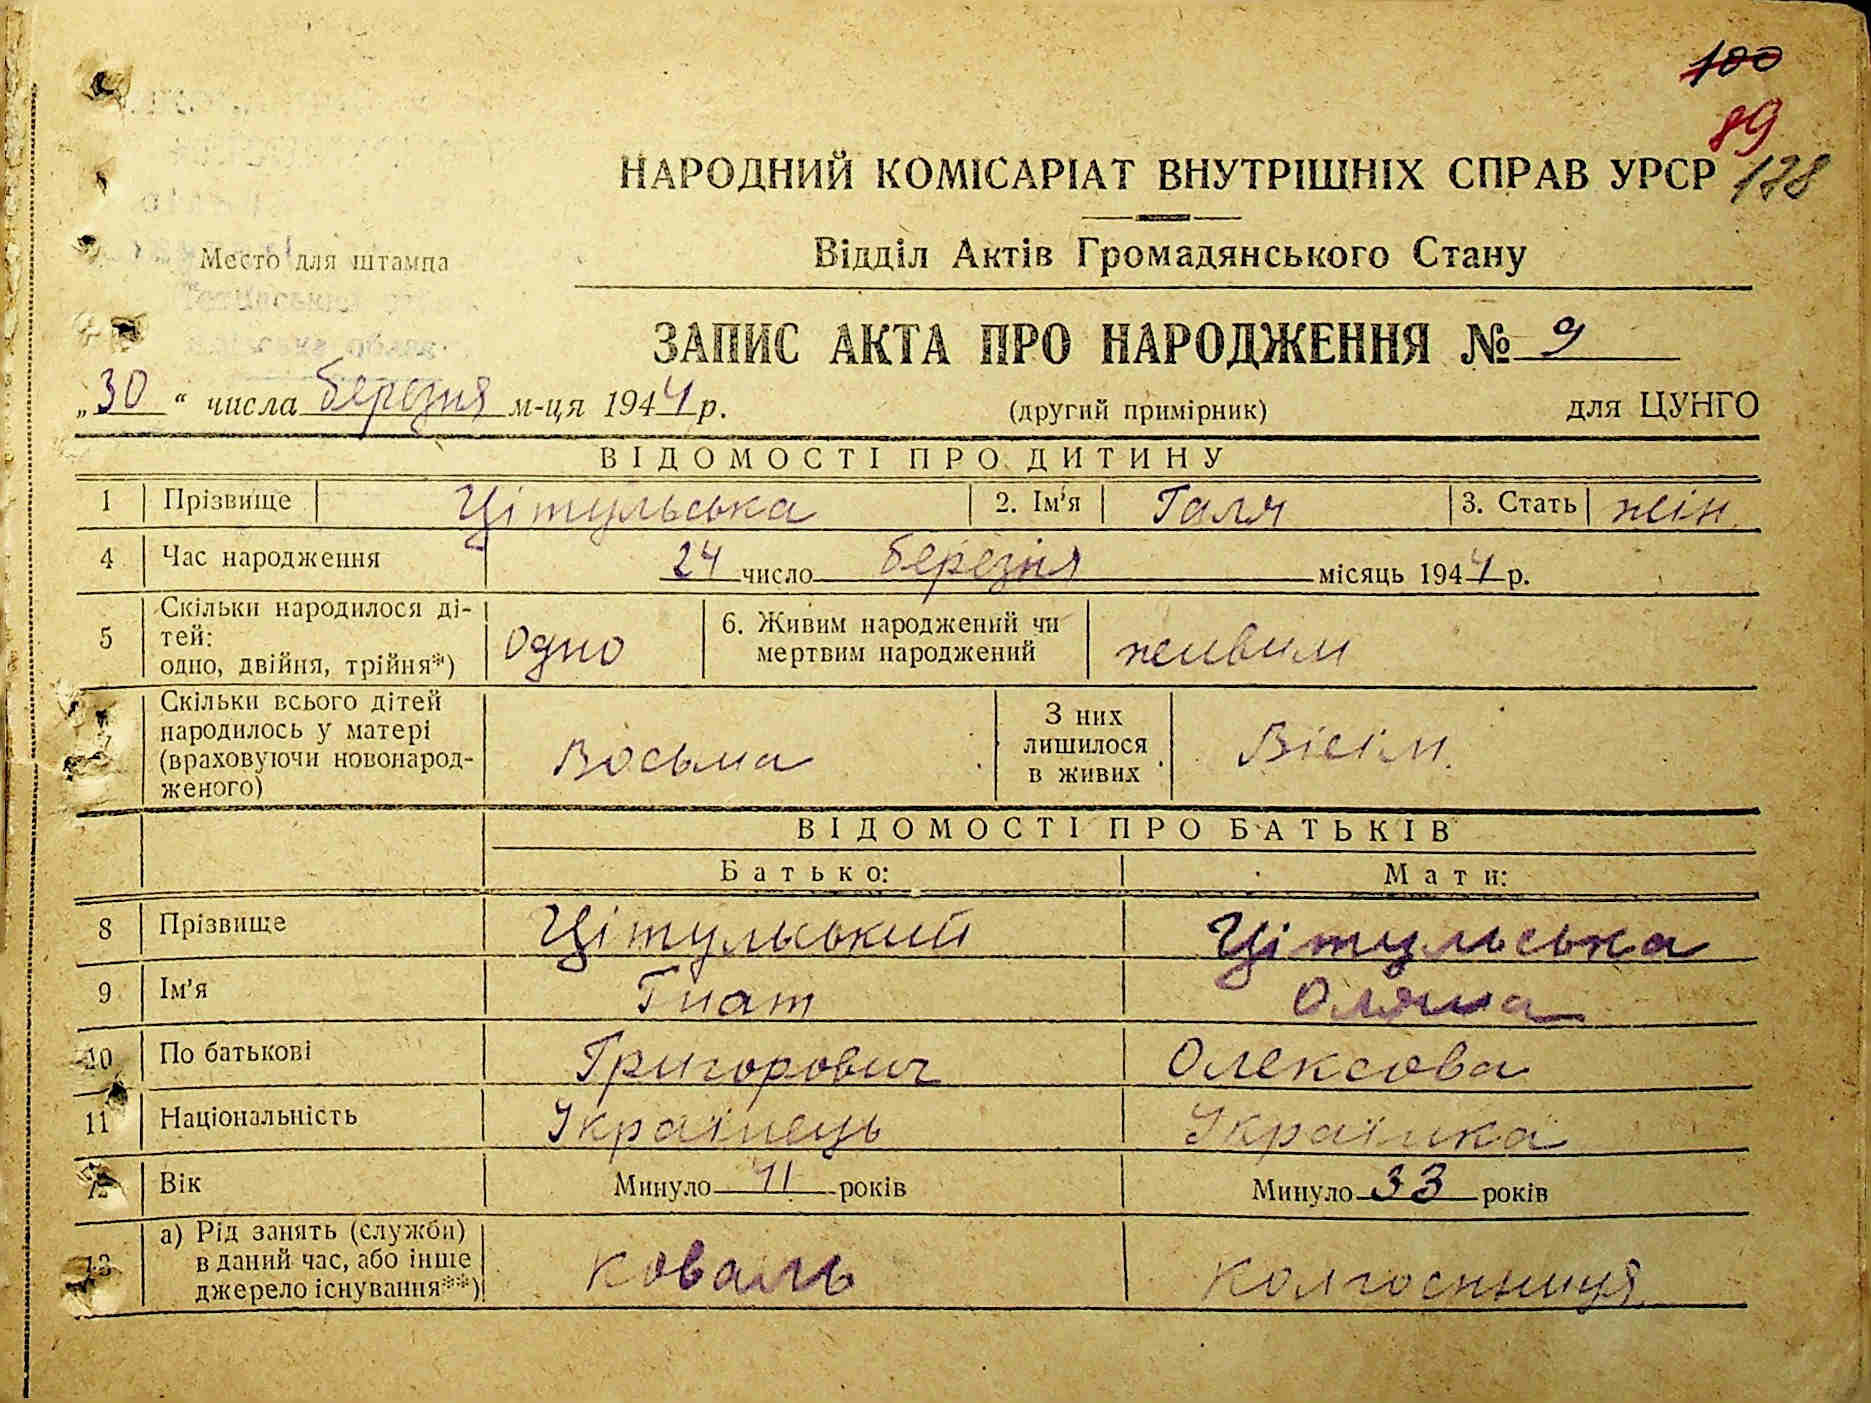 100
89
НАРОДНИЙ КОМІСАРІАТ ВНУТРІШНІХ СПРАВ УРСР 128
Место для штампа
Відділ Актів Громадянського Стану
ЗАПИС АКТА ПРО НАРОДЖЕННЯ № 9
„30“ числа березня м-ця 1944 р. (другий примірник) для ЦУНГО
ВІДОМОСТІ ПРО ДИТИНУ
1 Прізвище Цітульська 2. Ім'я Галя 3. Стать жін.
4 Час народження 24 число березня місяць 1944 р.
5 Скільки народилося ді-
тей:
одно, двійня, трійня*) Одно 6. Живим народжений чи
мертвим народжений живим
7 Скільки всього дітей
народилось у матері
(враховуючи новонарод-
женого) Восьма З них
лишилося
в живих Вісім.
ВІДОМОСТІ ПРО БАТЬКІВ
Батько: Мати:
8 Прізвище Цітульський Цітульська
9 Ім'я Гнат
10 По батькові Григорович Олексова
11 Національність Українець Українка
12 Вік Минуло 41 років Минуло 33 років
13 а) Рід занять (служби)
в даний час, або інше
джерело існування**) коваль колгоспниця